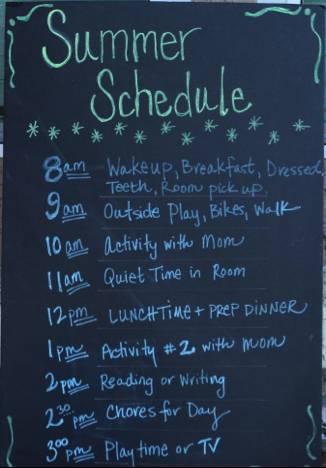 Summer
Schedule
8am Wake up, Breakfast, Dressed,
Teeth, Room pick up.
9am Outside Play, Bikes, Walk
10am Activity with Mom
11am Quiet Time in Room
12pm LUNCHTIME + PREP DINNER
1pm Activity #2 with mom
2pm Reading or Writing
2:30 pm Chores for Day
3:00 pm Playtime or TV